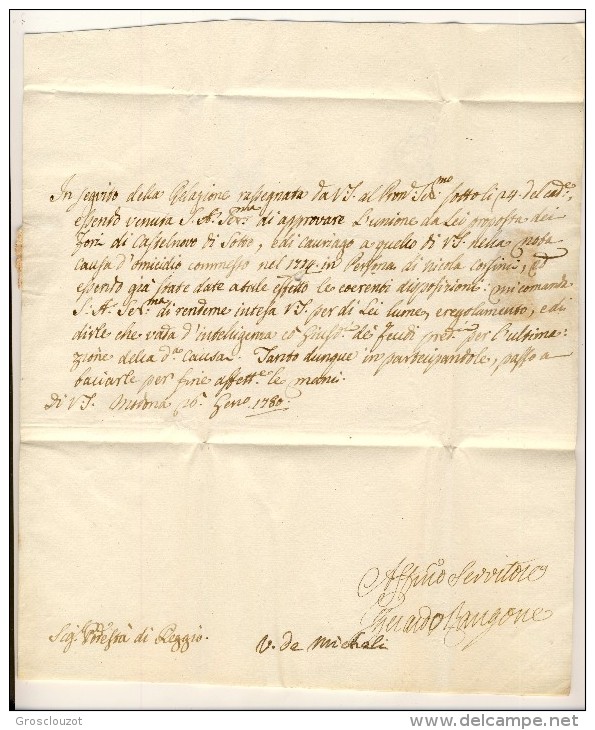 In seguito della Relazione rassegnata da V.S. al Pron. Ser.mo sotto li 24 del cad.e,
essendo venuta S. A. Ser.ma di approvare l'unione da Lei proposta dei
di Castelnovo di Sotto, e di Cauriago a quello di V.S. nella nota
causa d'omicidio commesso nel in Persona di Nicola Corsini,
essendo già state date a tale effetto le coerenti disposizioni: mi comanda
S. A. Ser.ma di renderne intesa V.S. per di Lei lume, e regolamento, e di
dirle che vada d'intelligenza co dei Feudi pred.i per l'ultima:
zione della d.a Causa. Tanto dunque in partecipandole, passo a
baciarle per fine affett.e le mani.
Di V.S. Modona 26 Genn.o 1780
Aff.mo Servitore
Gherardo Rangone
Sig.r Podestà di Reggio.
V. de Micheli
Grosclouzot
www.delcampe.net